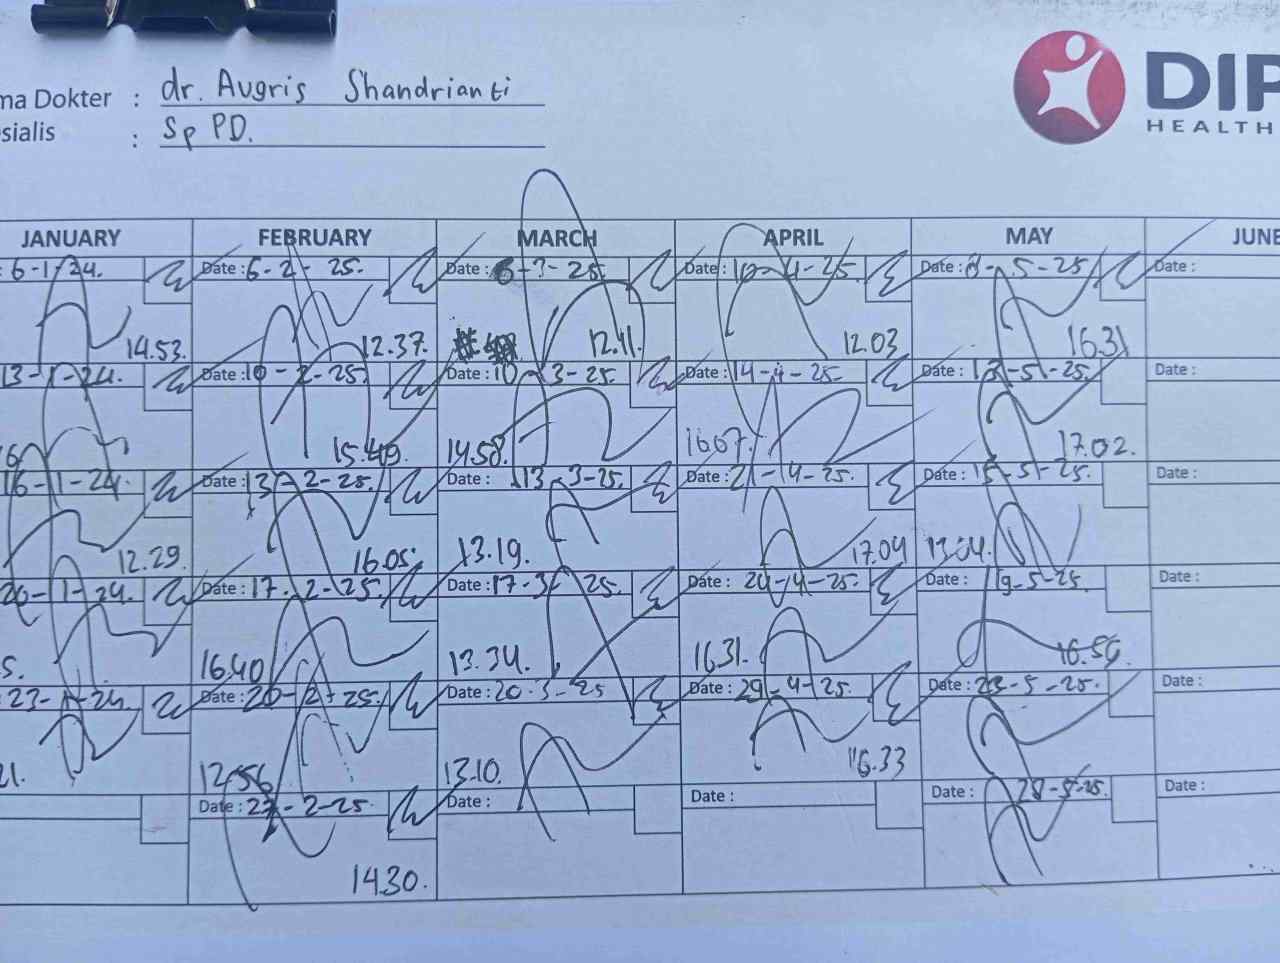 ma Dokter : dr. Augris Shandrianti
sialis : Sp PD.
DIP
HEALTH
JANUARY FEBRUARY MARCH APRIL MAY JUNE
: 6-1-24. Date : 6-2-25. Date : 6-3-25. Date : Date : 5-25 Date :
14.53. 12.37. 12.11. 12.03 16.31
13-1-24. Date : 10-2-25. Date : 10-3-25. Date : 14-4-25. Date : 13-5-25. Date :
15.49. 14.58. 16.07. 17.02.
16-1-24. Date : 13-2-25. Date : 13-3-25. Date : 21-4-25. Date : 15-5-25. Date :
12.29. 16.05. 13.19. 17.04 13.04.
20-1-24. Date : 17-2-25. Date : 17-3-25. Date : 24-4-25. Date : 19-5-25. Date :
16.40 13.34. 16.31. 16.56.
: 23-1-24. Date : 20-2-25. Date : 20-3-25 Date : 29-4-25. Date : 23-5-25. Date :
21. 12.56 13.10. 16.33
Date : 27-2-25. Date : Date : Date : 28-5-25. Date :
14.30.